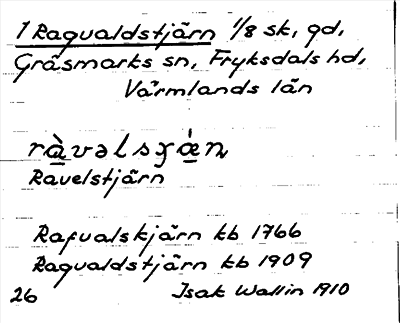 1 Ragvaldstjärn 1/8 sk, gd,
Gräsmarks sn, Fryksdals hd,
Värmlands län
ràvəlsɣæ̀n
Ravelstjärn
Rafvalskjärn kb 1766
Ragvaldstjärn kb 1909
26 Isak Wallin 1910